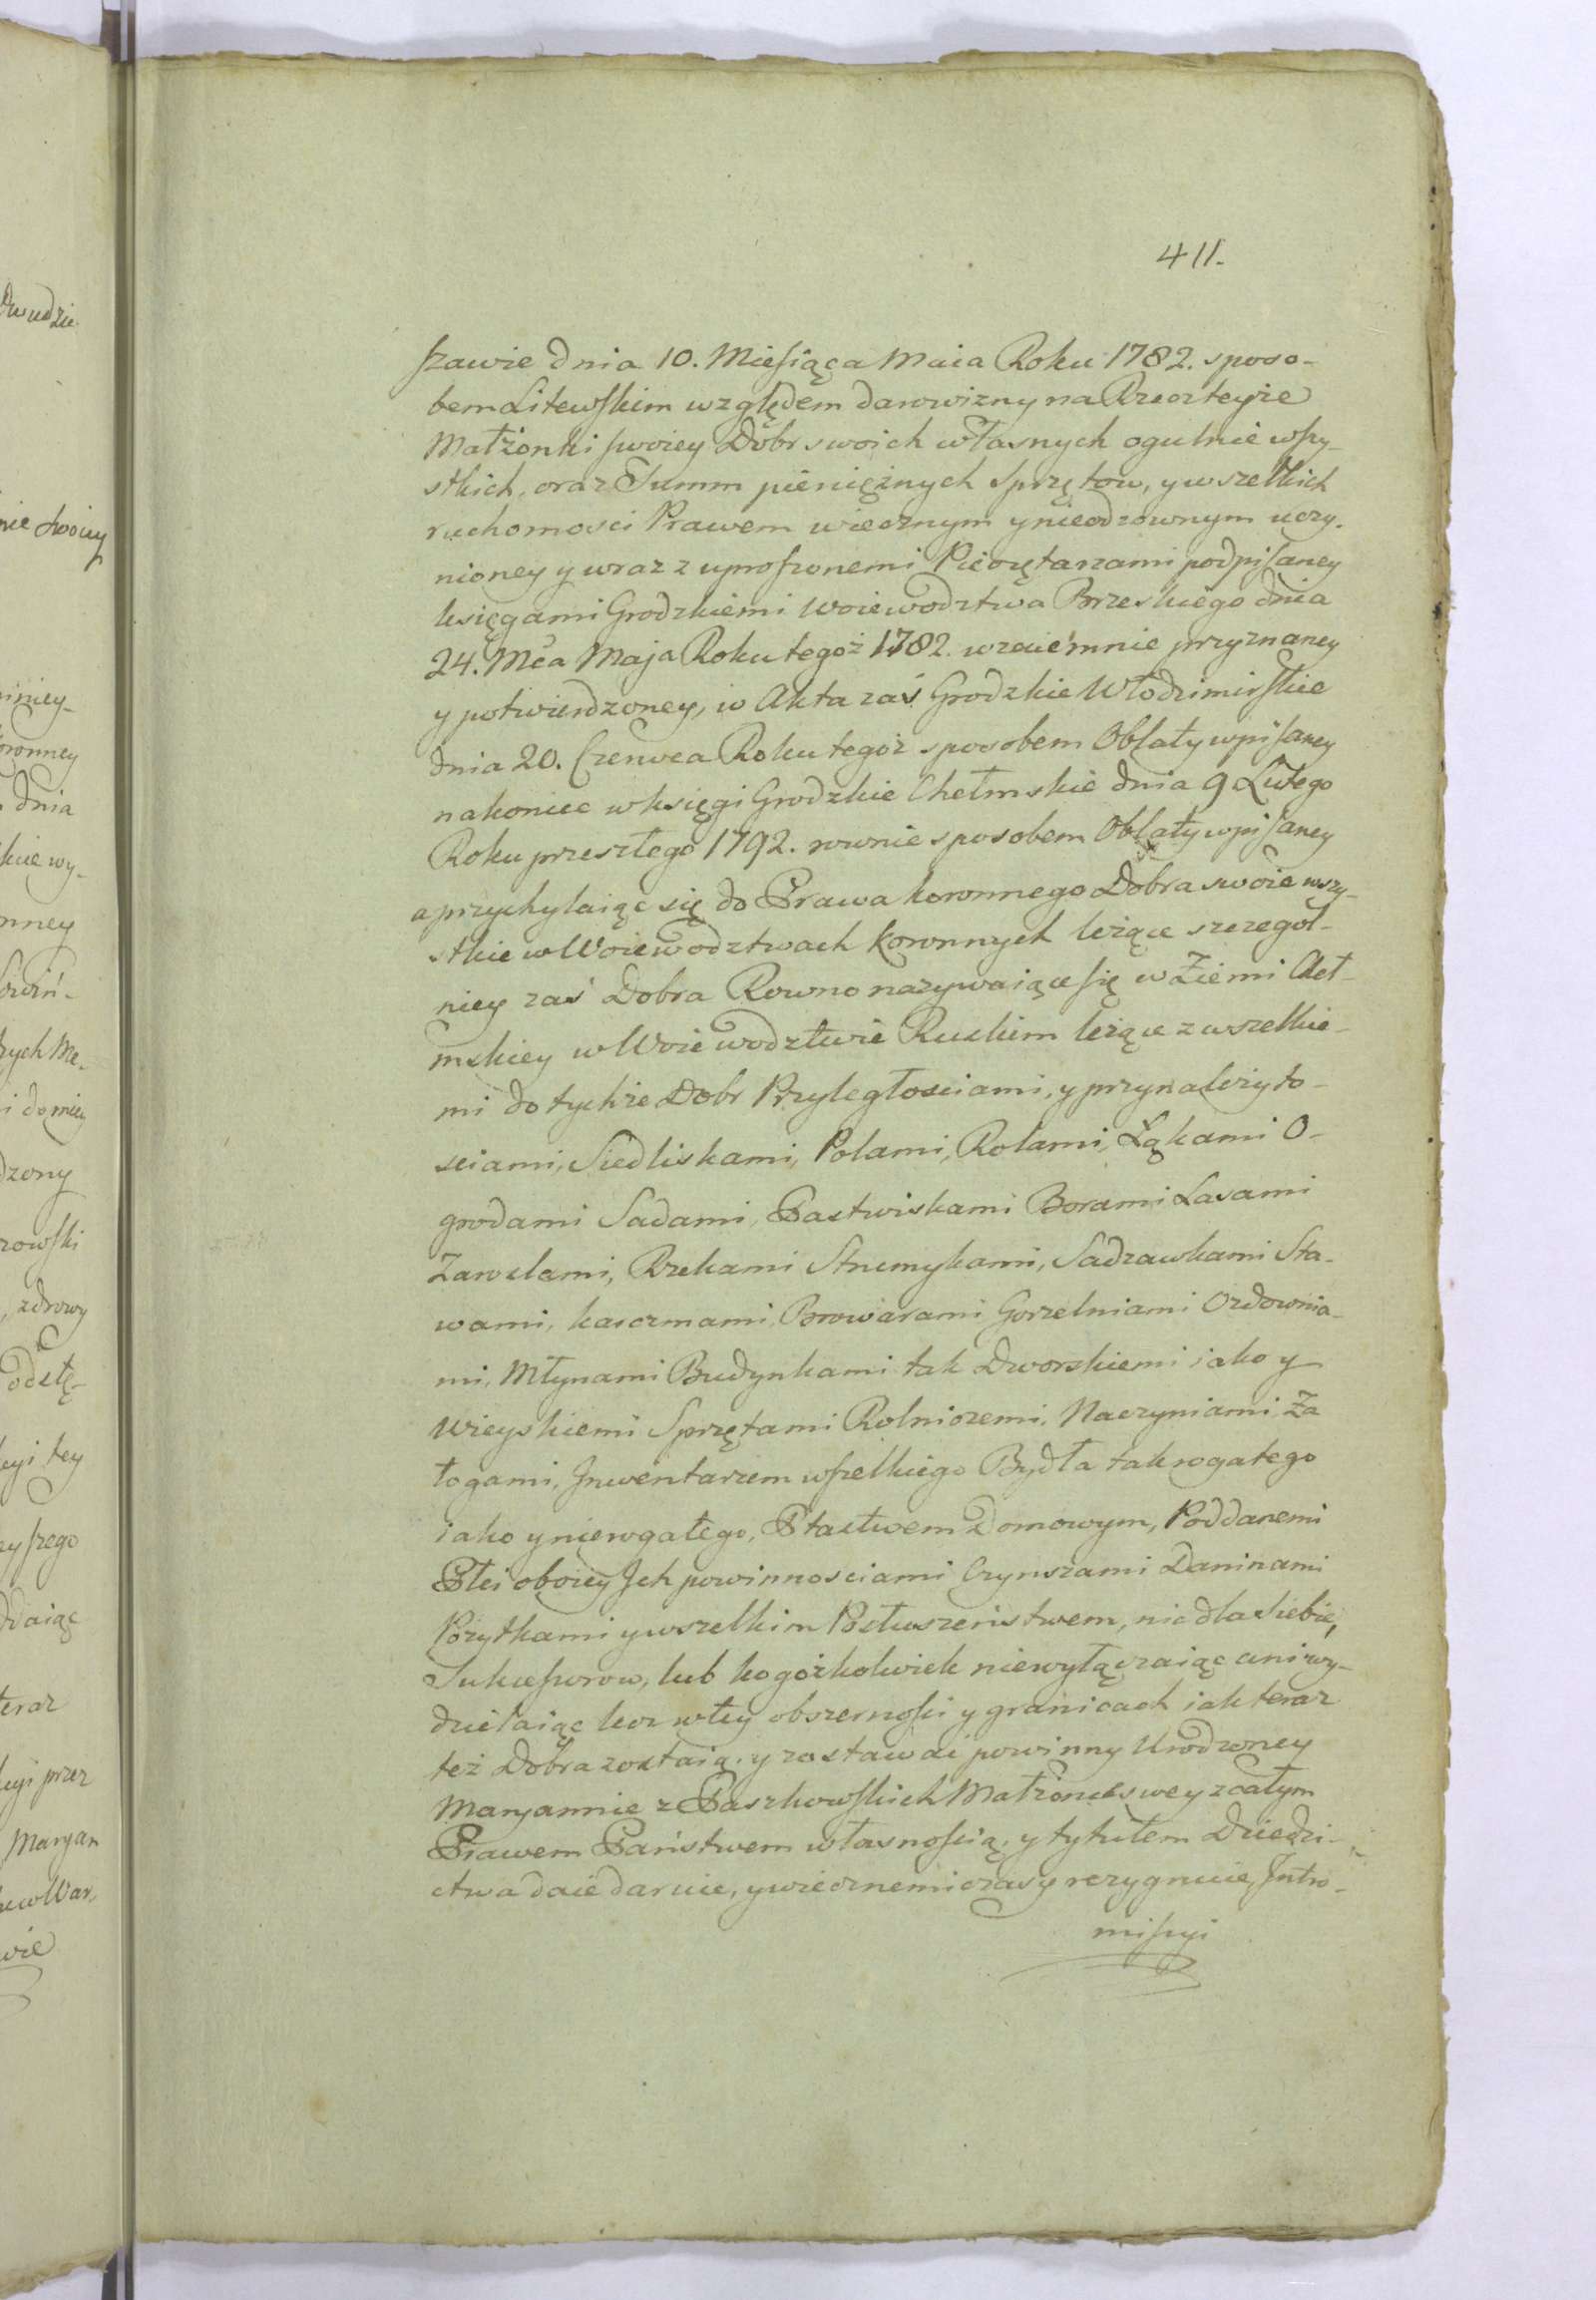 411.
szawie dnia 10. Miesiąca Maia Roku 1782. sposo-
bem Litewskim względem darowizny na Rzecz teyże
Małżonki swoiey Dobr swoich własnych ogulnie wszy-
stkich, oraz Summ pieniężnych Sprzętow, y wszelkich
ruchomosci Prawem wiecznym y nieodzownym uczy-
nioney y wraz z uproszonemi Pieczętarzami podpisaney
księgami Grodzkiemi Woiewodztwa Brzeskiego dnia
24. Mca Maja Roku tegoż 1782. wzaiemnie przyznaney
y potwierdzoney, w Akta zaś Grodzkie Włodzimirskie
dnia 20. Czerwca Roku tegoż sposobem Oblaty wpisaney
nakoniec w księgi Grodzkie Chełmskie dnia 9 Lutego
Roku przeszłego 1792. rownie sposobem Oblaty wpisaney
a przychylaiąc się do Prawa koronnego Dobra swoie wszy-
stkie w Woiewodztwach koronnych leżące szczegol-
niey zaś Dobra Rowno nazywaiące się w Ziemi Cheł-
mskiey w Woiewodztwie Ruskim leżące z wszelkie-
mi do tychże Dobr Przyległosciami, y przynależyto-
sciami, Siedliskami, Polami, Rolami, Łąkami O-
grodami Sadami, Pastwiskami Borami Lasami
Zaroslami, Rzekami Strumykami, Sadzawkami Sta-
wami, karczmami, Browarami Gorzelniami Ozdownia-
mi, Młynami Budynkami tak Dworskiemi iako y
Wieyskiemi Sprzętami Rolniczemi, Naczyniami Za
łogami, Inwentarzem wszelkiego Bydła tak rogatego
iako y nierogatego, Ptastwem Domowym, Poddanemi
Płci oboiey Ich powinnosciami Czynszami Daninami
Pożytkami y wszelkim Posłuszeństwem, nic dla Siebie,
Sukcessorow, lub kogożkolwiek niewyłączaiąc ani wy-
dzielaiąc lecz w tey obszernosci y granicach iak teraz
też Dobra zostaią, y zostawać powinny Urodzoney
Maryannie z Paszkowskich Małżonce swey z całym
Prawem Państwem własnością, y tytułem Dziedzi-
ctwa daie daruie, y wiecznemi czasy rezygnuie, Intro-
missyi